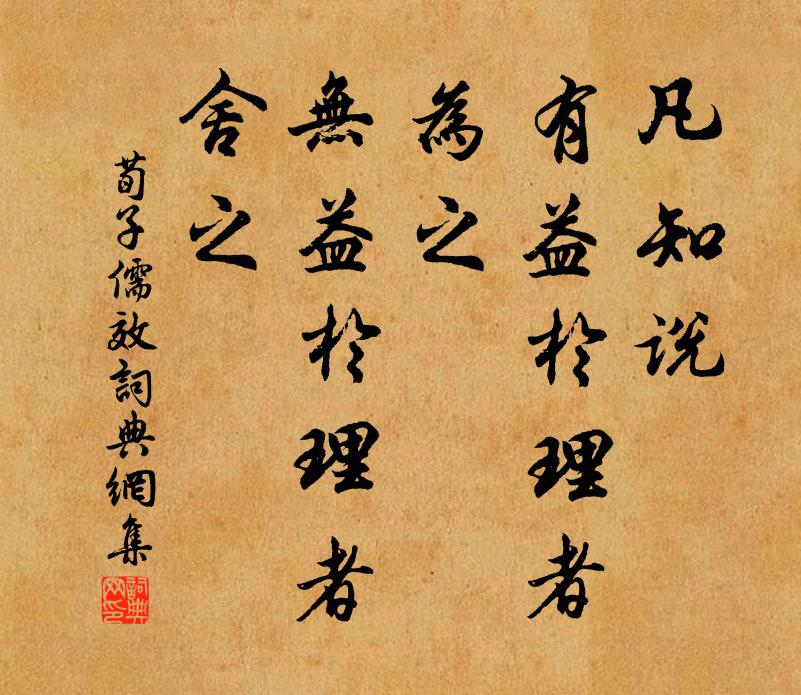 凡知説
有益於理者
為之
無益於理者
舍之
荀子儒效詞典網集
詞典网印